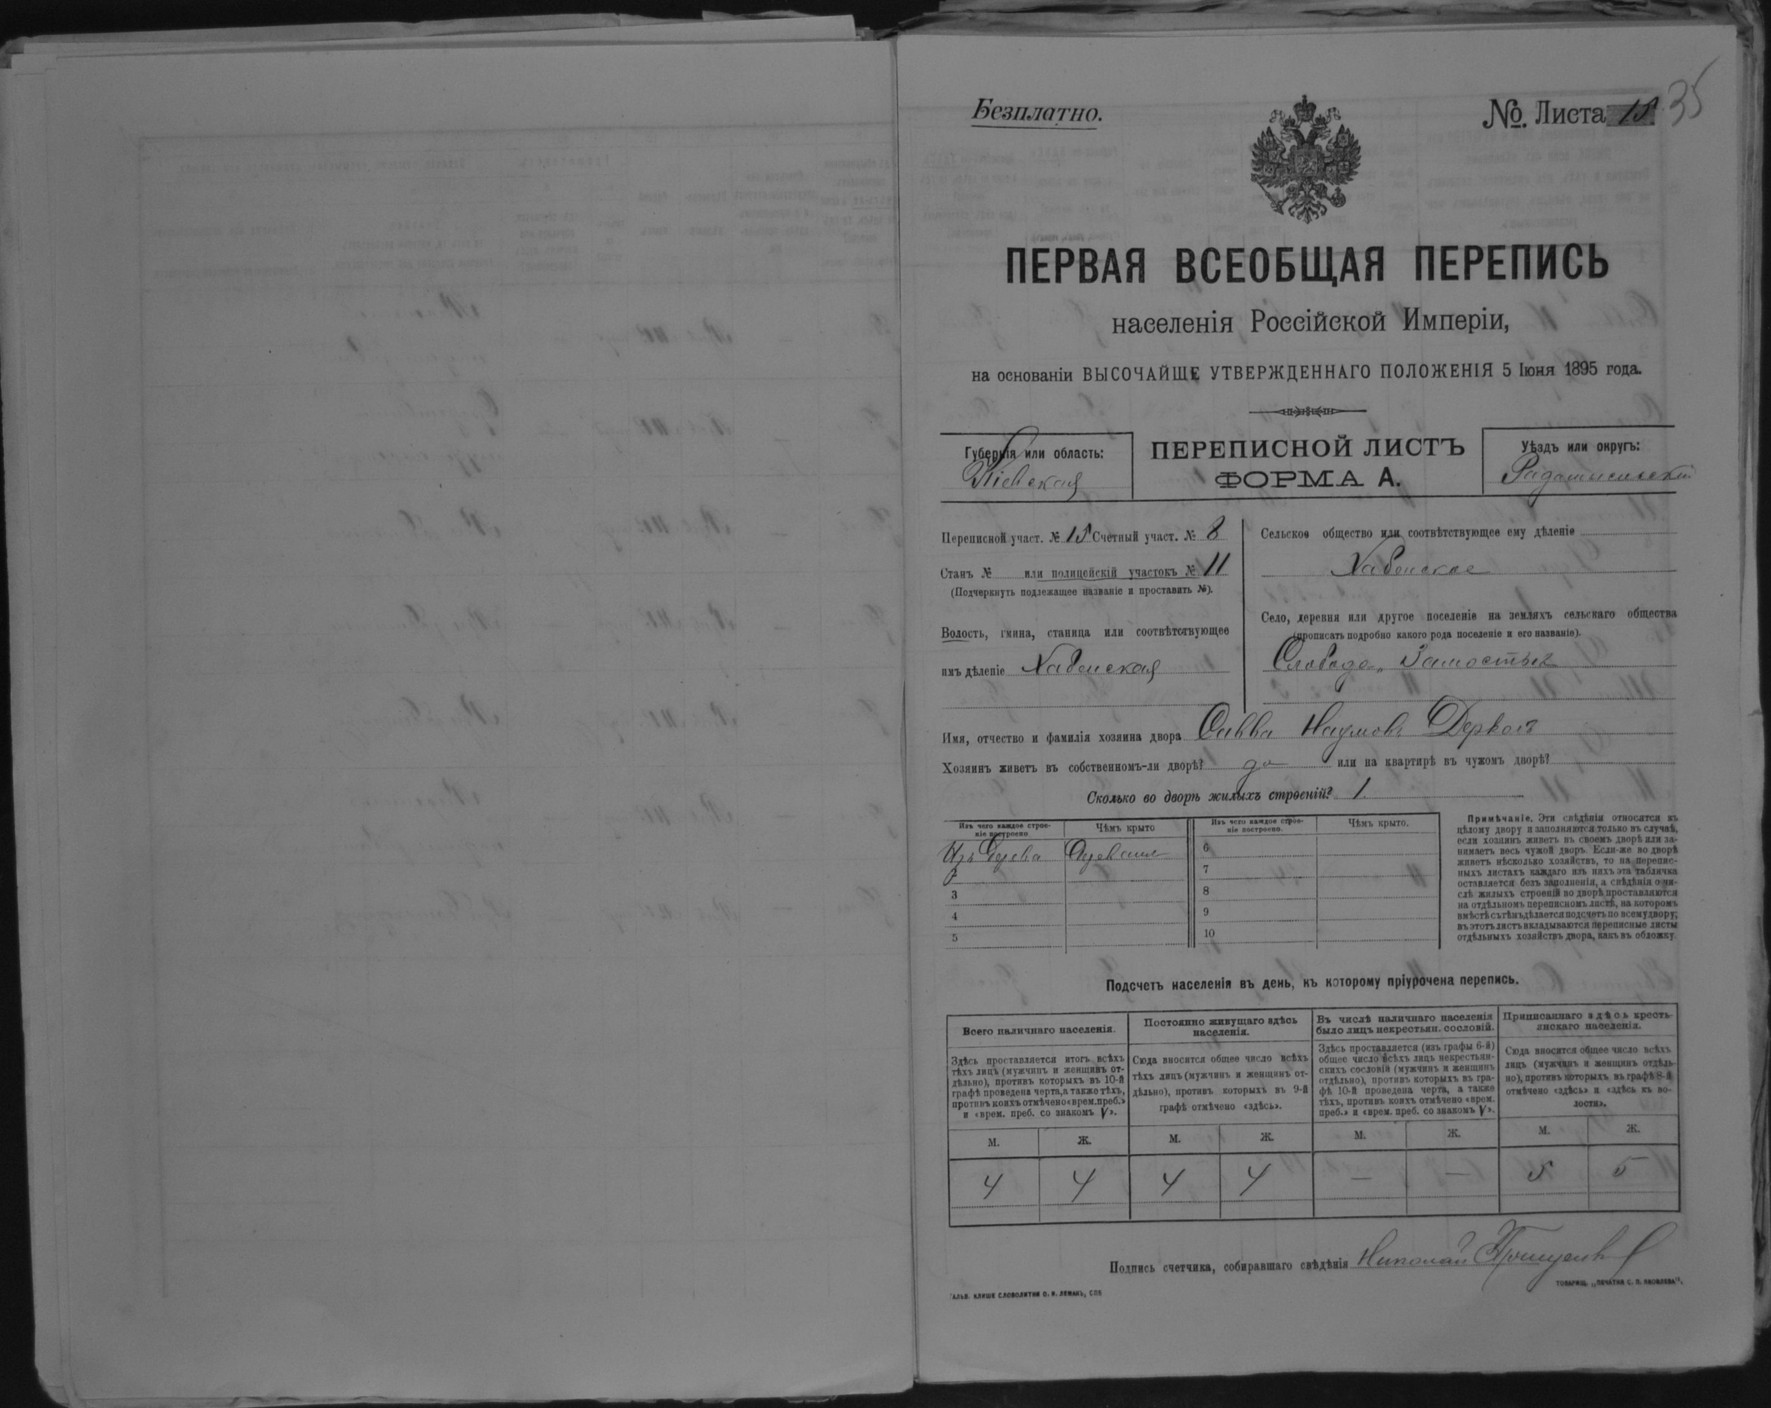 Безплатно.
№. Листа 18. 35
ПЕРВАЯ ВСЕОБЩАЯ ПЕРЕПИСЬ
населенія Россійской Имперіи,
на основаніи ВЫСОЧАЙШЕ УТВЕРЖДЕННАГО ПОЛОЖЕНІЯ 5 Іюня 1895 года.
Губернія или область:
Кіевская
ПЕРЕПИСНОЙ ЛИСТЪ
ФОРМА А.
Уѣздъ или округъ:
Радомысльскій
Переписной участ. № 15 Счетный участ. № 8
Станъ № или полицейскій участокъ № 11
(Подчеркнуть подлежащее названіе и проставить №).
Волость, гмина, станица или соотвѣтствующее
имъ дѣленіе Хабенская
Сельское общество или соотвѣтствующее ему дѣленіе
Хабенское
Село, деревня или другое поселеніе на земляхъ сельскаго общества
(прописать подробно какого рода поселеніе и его названіе).
Слобода Замостье
Имя, отчество и фамилія хозяина двора Савва Наумовъ
Хозяинъ живетъ въ собственномъ-ли дворѣ? да или на квартирѣ въ чужомъ дворѣ?
Сколько во дворѣ жилыхъ строеній? 1.
Изъ чего каждое строе-
ніе построено
Чѣмъ крыто
Изъ дерева
2
3
4
5
Изъ чего каждое строе-
ніе построено.
Чѣмъ крыто.
6
7
8
9
10
Примѣчаніе. Эти свѣдѣнія относятся къ
цѣлому двору и заполняются только въ случаѣ,
если хозяинъ живетъ въ своемъ дворѣ или за-
нимаетъ весь чужой дворъ. Если-же во дворѣ
живетъ нѣсколько хозяйствъ, то на перепис-
ныхъ листахъ каждаго изъ нихъ эта табличка
оставляется безъ заполненія, а свѣдѣнія о чи-
слѣ жилыхъ строеній во дворѣ проставляются
на отдѣльномъ переписномъ листѣ, на которомъ
вмѣстѣ съ тѣмъ дѣлается подсчетъ по всему двору;
въ этотъ листъ вкладываются переписные листы
отдѣльныхъ хозяйствъ двора, какъ въ обложку.
Подсчетъ населенія въ день, къ которому пріурочена перепись.
Всего наличнаго населенія.
Здѣсь проставляется итогъ всѣхъ
тѣхъ лицъ (мужчинъ и женщинъ от-
дѣльно), противъ которыхъ въ 10-й
графѣ проведена черта, а также тѣхъ,
противъ коихъ отмѣчено «врем. преб.»
и «врем. преб. со знакомъ V».
М. Ж.
4 4
Постоянно живущаго здѣсь
населенія.
Сюда вносится общее число всѣхъ
тѣхъ лицъ (мужчинъ и женщинъ от-
дѣльно), противъ которыхъ въ 9-й
графѣ отмѣчено «здѣсь».
М. Ж.
4 4
Въ числѣ наличнаго населенія
было лицъ некрестьян. сословій.
Здѣсь проставляется (изъ графы 6-й)
общее число всѣхъ лицъ некрестьян-
скихъ сословій (мужчинъ и женщинъ
отдѣльно), противъ которыхъ въ гра-
фѣ 10-й проведена черта, а также
тѣхъ, противъ коихъ отмѣчено «врем.
преб.» и «врем. преб. со знакомъ V».
М. Ж.
— —
Приписаннаго здѣсь кресть-
янскаго населенія.
Сюда вносится общее число всѣхъ
лицъ (мужчинъ и женщинъ отдѣль-
но), противъ которыхъ въ графѣ 8-й
отмѣчено «здѣсь» и «здѣсь въ во-
лости».
М. Ж.
5 5
Подпись счетчика, собиравшаго свѣдѣнія Николай
ГАЛЬВ. КЛИШЕ СЛОВОЛИТНИ О. И. ЛЕМАНЪ, СПБ
ТОВАРИЩ. „ПЕЧАТНЯ С. П. ЯКОВЛЕВА".